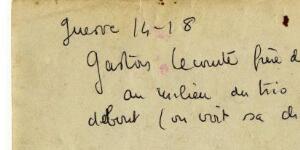 Guerre 14-18
Gaston Lecomte frère d
au milieu du trio
debout (on voit sa ch